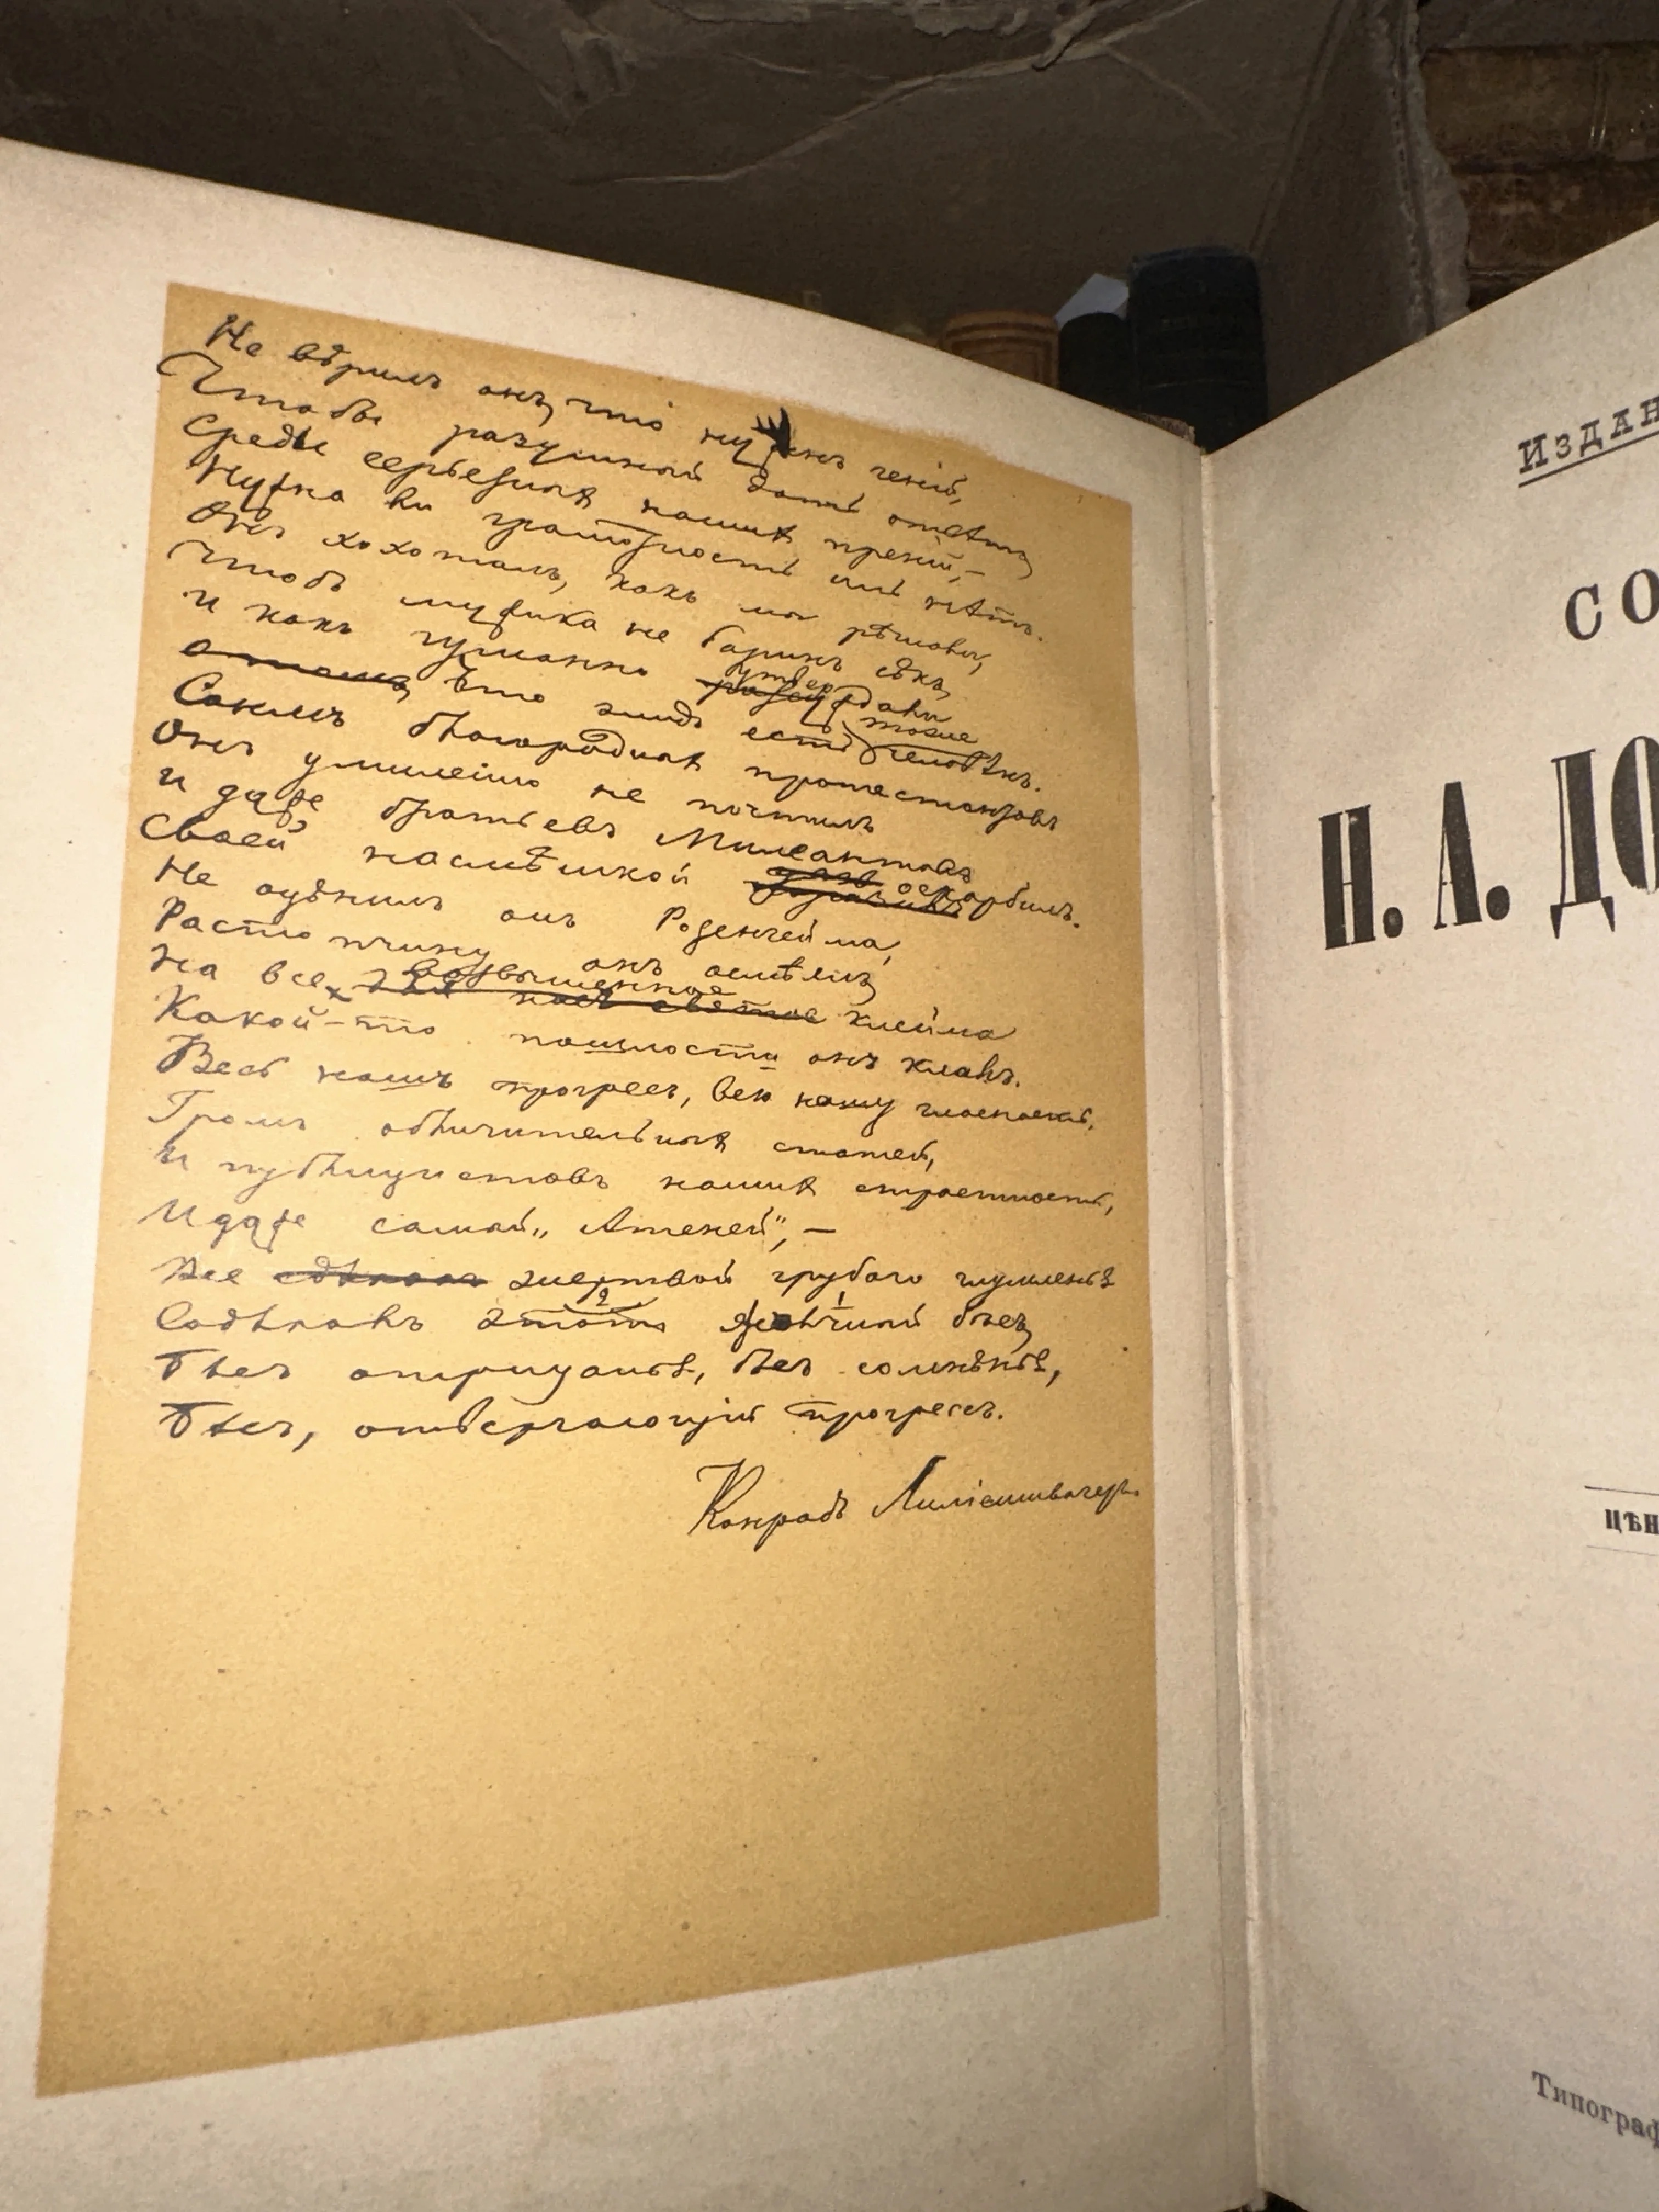 Не вѣрилъ онъ, что нуженъ геній,
Чтобы разумный дать отвѣтъ,
Средь серьезныхъ нашихъ преній,—
Нужна ли грамотность иль нѣтъ.
Онъ хохоталъ, какъ мы рѣшали,
Чтобъ мужика не баринъ сѣкъ,
И какъ гуманно утверждали
Что жидъ есть тоже человѣкъ.
Сонмъ благородныхъ протестантовъ
Онъ умиленно не почтилъ
И даже братьевъ Милеантовъ
Своей насмѣшкой оскорбилъ.
Не оцѣнилъ онъ Розенгейма,
Растопчину онъ осмѣялъ,
На все возвышенное клейма
Какой-то пошлости онъ клалъ.
Весь нашъ прогрессъ, всю нашу гласность,
Громъ обличительныхъ статей,
И публицистовъ нашихъ страстность,
И даже самый „Атеней",—
Все жертвой грубаго глумленья
Содѣлалъ этотъ желчный бѣсъ,
Бѣсъ отрицанья, бѣсъ сомнѣнья,
Бѣсъ, отвергающій прогрессъ.
Конрадъ Лиліеншвагеръ.
Издан
СО
Н. А. ДО
ЦѢН
Типограф